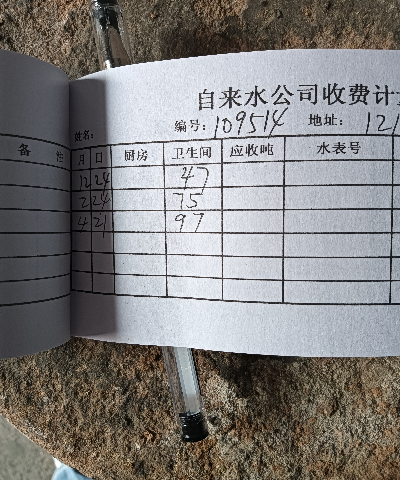 自来水公司收费计
姓名: 编号: 109514 地址: 121
备 注 月 日 厨房 卫生间 应收吨 水表号
12 24 47
2 24 75
4 21 97